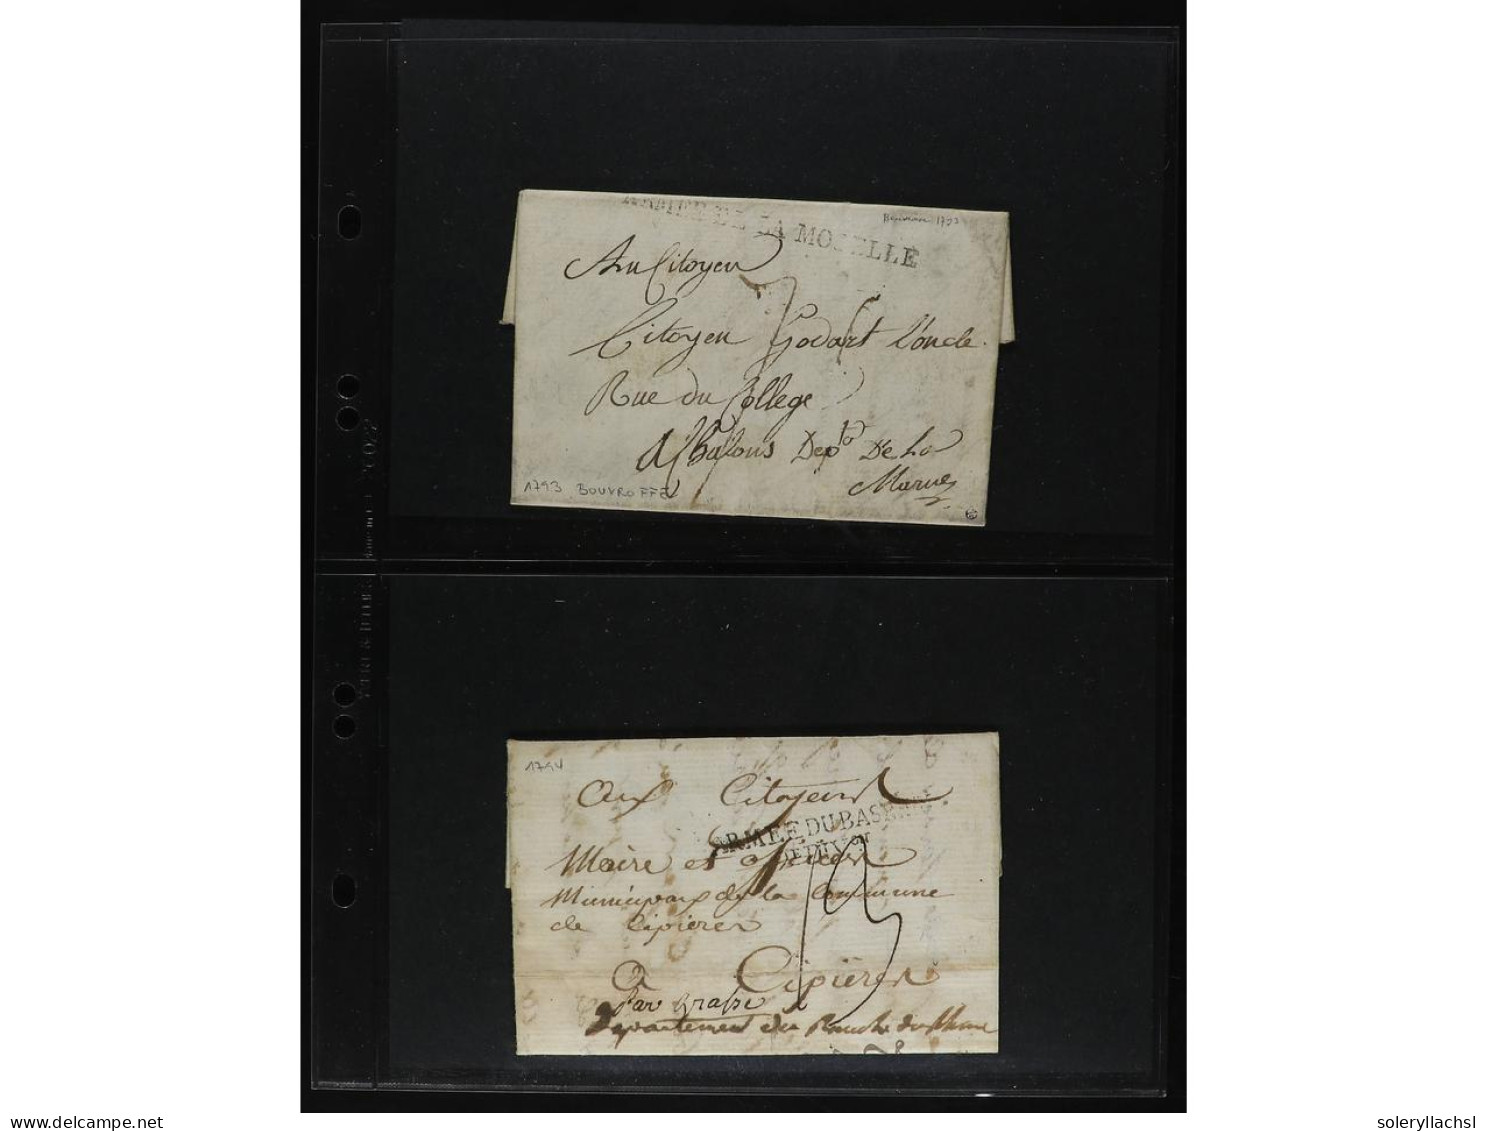 ARMÉE DE LA MOSELLE
1793
Au Citoyen
Citoyen Godart l'oncle
Rue du College
a Chalons Dep.to De La
Marne
1793 BOUVROFFE
1794
Aux Citoyens
ARMÉE DU BAS
DIVISION
Maire et officiers
Municipaux de la Commune
de Cipieres
a Cipières
Par Grasse
Departement du Bouche du Rhone
www.delcampe.net
soleryllachsl